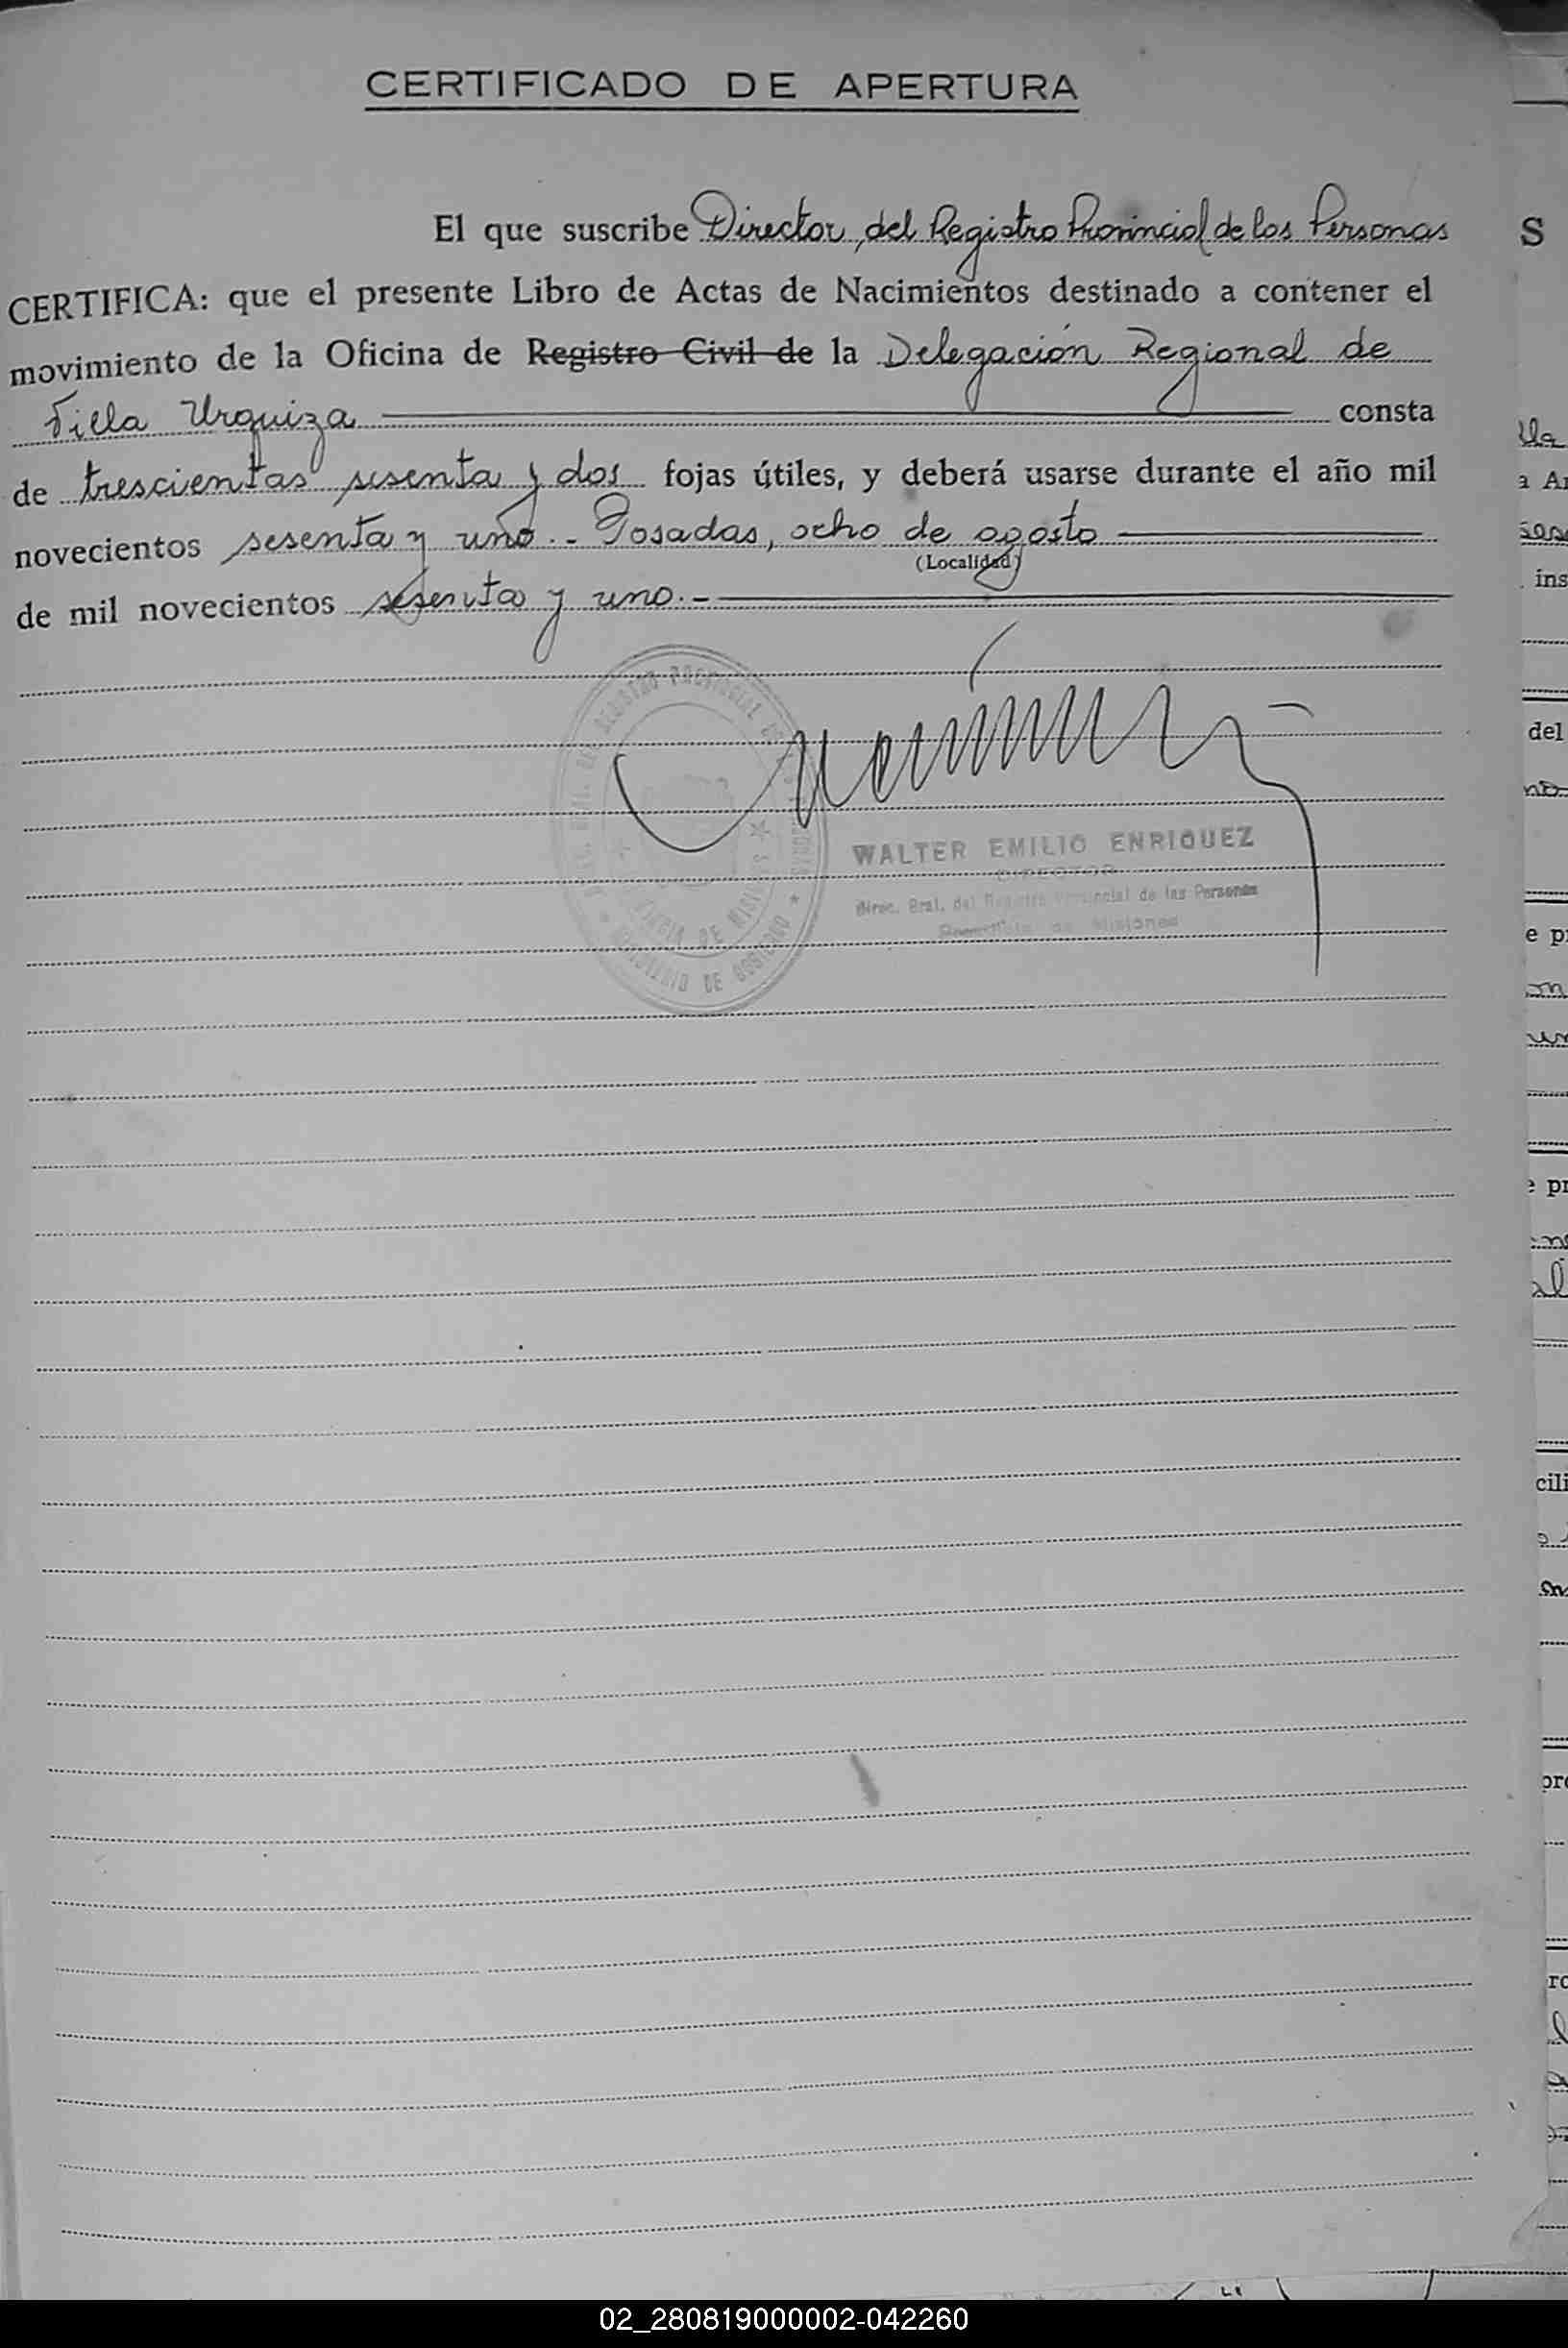 CERTIFICADO DE APERTURA
El que suscribe Director, del Registro Provincial de las Personas
CERTIFICA: que el presente Libro de Actas de Nacimientos destinado a contener el
movimiento de la Oficina de Registro Civil de la Delegación Regional de
Villa Urquiza consta
de trescientas sesenta y dos fojas útiles, y deberá usarse durante el año mil
novecientos sesenta y uno.- Posadas, ocho de agosto
(Localidad)
de mil novecientos sesenta y uno.-
REGISTRO PROVINCIAL DE LAS PERSONAS
PROVINCIA DE MISIONES
MINISTERIO DE GOBIERNO
WALTER EMILIO ENRIQUEZ
DIRECTOR
Direc. Gral. del Registro Provincial de las Personas
Provincia de Misiones
S
lla
del
e p
cili
02_280819000002-042260